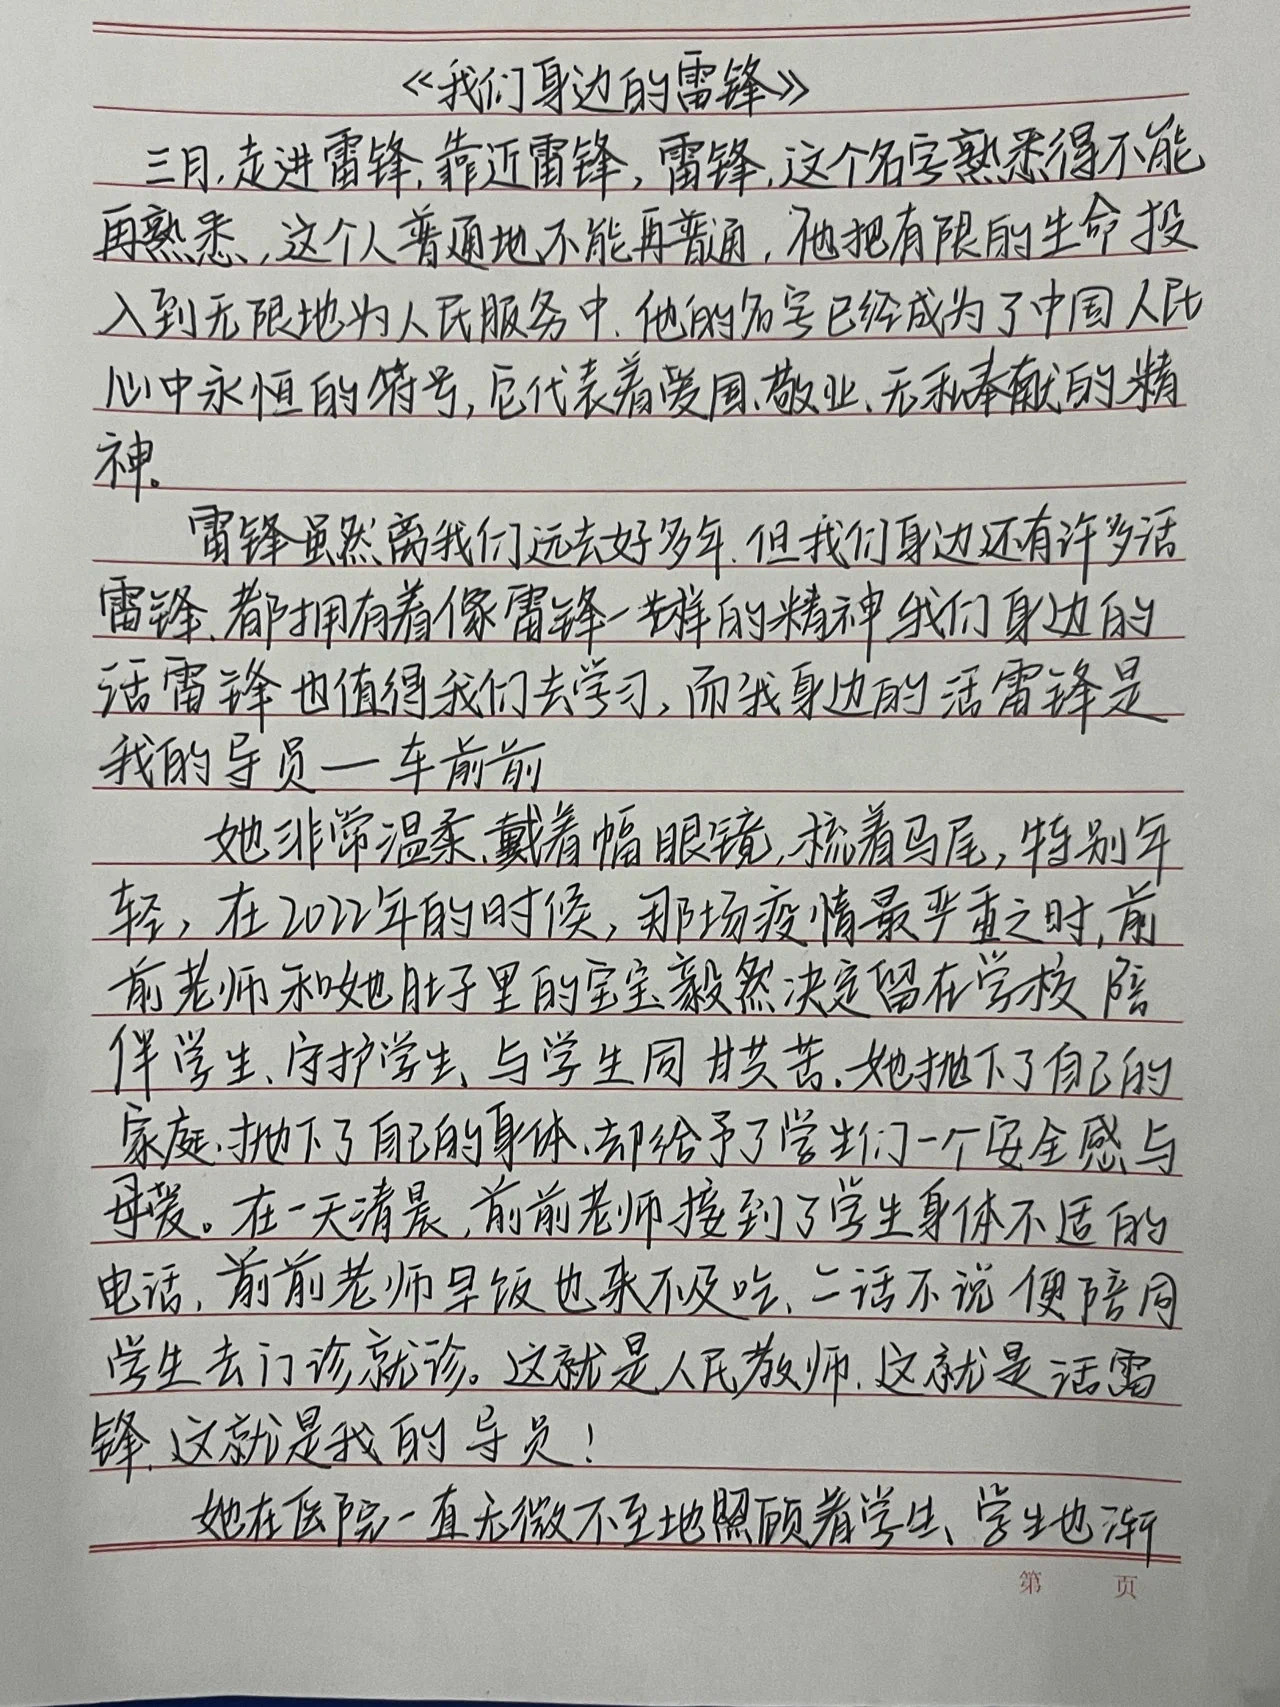 《我们身边的雷锋》
三月,走进雷锋,靠近雷锋,雷锋,这个名字熟悉得不能
再熟悉,这个人普通地不能再普通,他把有限的生命投
入到无限地为人民服务中.他的名字已经成为了中国人民
心中永恒的符号,它代表着爱国、敬业、无私奉献的精
神。
雷锋虽然离我们远去好多年.但我们身边还有许多活
雷锋、都拥有着像雷锋一样的精神,我们身边的
活雷锋也值得我们去学习,而我身边的活雷锋是
我的导员—车前前
她非常温柔、戴着幅眼镜,梳着马尾,特别年
轻,在2022年的时候,那场疫情最严重之时,前
前老师和她肚子里的宝宝、毅然决定留在学校陪
伴学生、守护学生、与学生同甘共苦.她抛下了自己的
家庭、抛下了自己的身体、却给予了学生们一个安全感与
母爱。在一天清晨,前前老师接到了学生身体不适的
电话,前前老师早饭也来不及吃、二话不说便陪同
学生去门诊就诊。这就是人民教师.这就是活雷
锋.这就是我的导员!
她在医院一直无微不至地照顾着学生、学生也渐
第 页